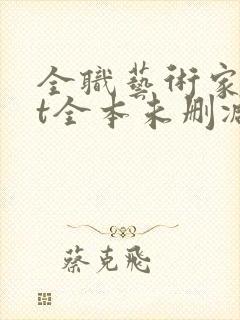 全職藝術家
t全本未刪減
蔡克飛